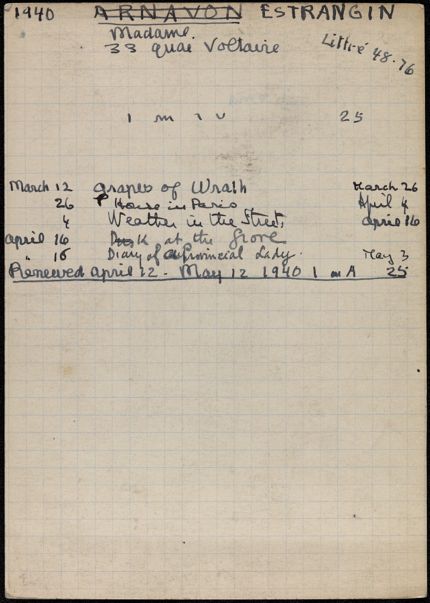 1940 ARNAVON ESTRANGIN
Madame.
33 quai Voltaire Littré 48.76
1 m 1 v 25
March 12 Grapes of Wrath March 26
26 House in Paris April 4
4 Weather in the Streets April 16
April 16 Dusk at the Grove
" 16 Diary of a Provincial Lady. May 3
Renewed April 12 - May 12 1940 1 m A 25